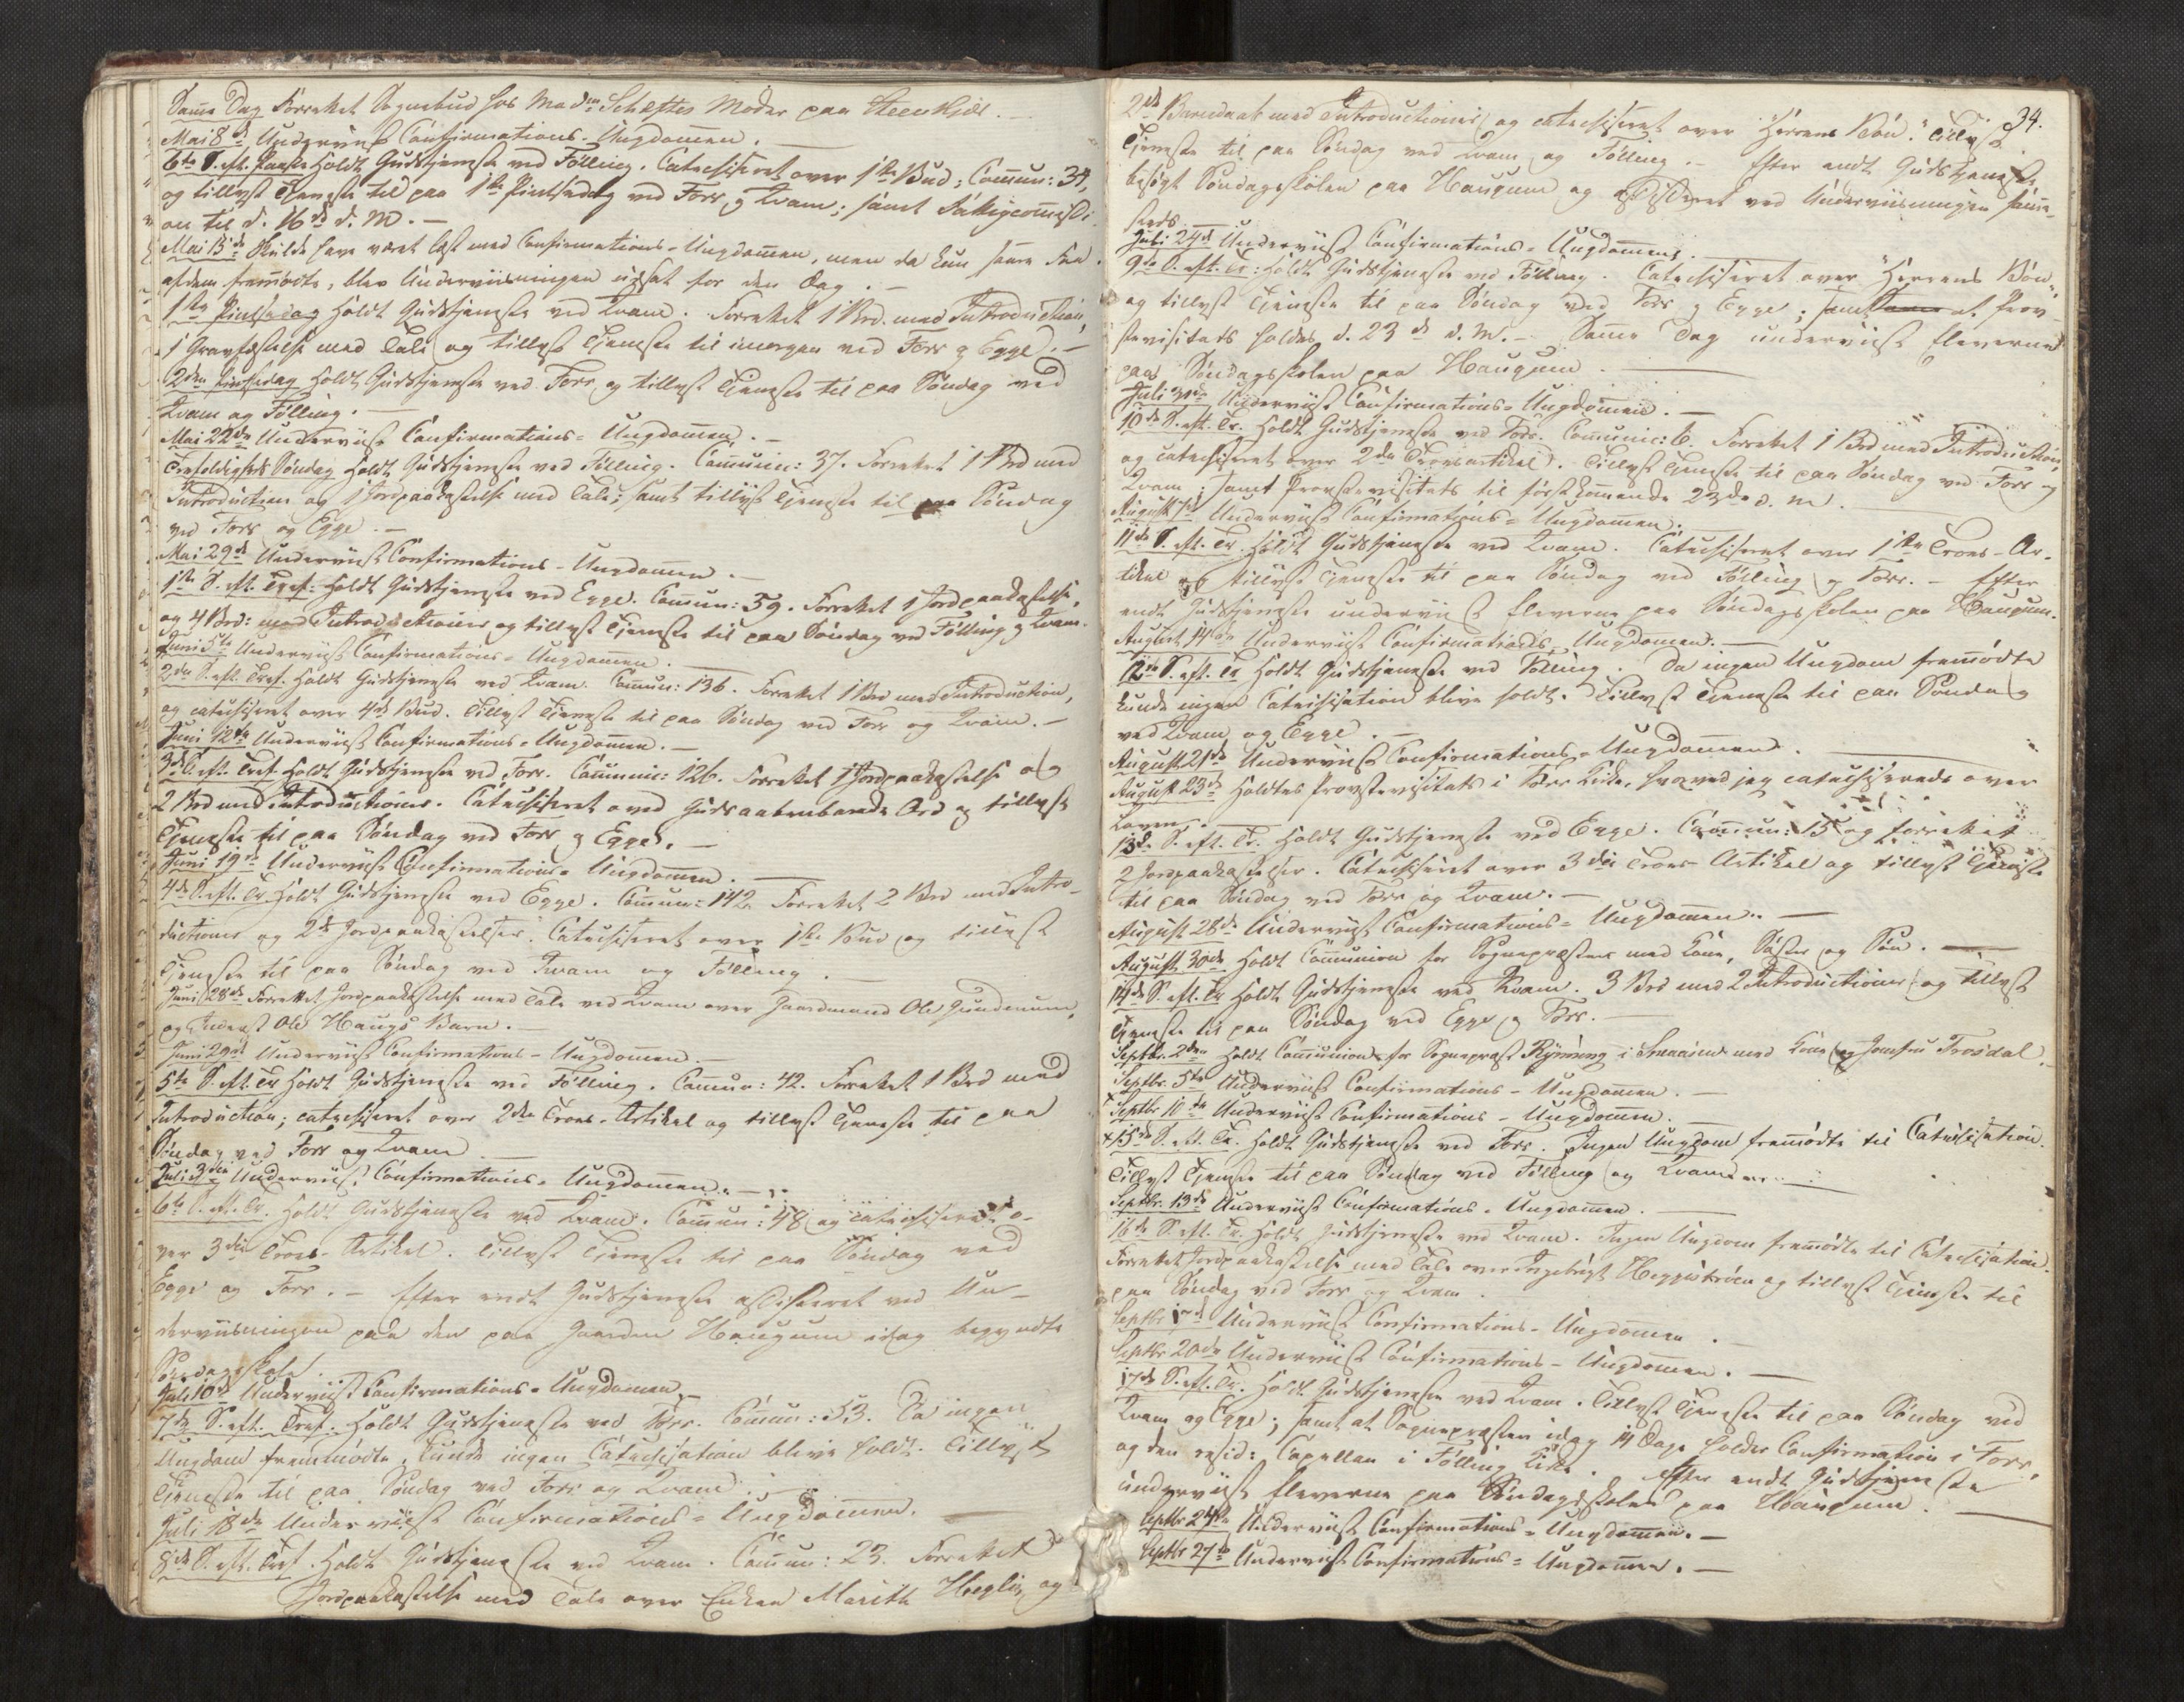 Samme Dag forrettet Sognebud hos Madm Scheftes Moder paa Steenkjær. —
Mai 8de Underviist Confirmations-Ungdommen. —
6te S. eft. Paaske Holdt Gudstjeneste ved Følling. Catechiseret over 1ste Bud; Commun: 34,
og tillyst Tjeneste til paa 1ste Pintsedag ved Forr og Qvam; samt Fattigcommissi-
on til d. 16de d. M. —
Mai 15de Skulde have været læst med Confirmations-Ungdommen, men da kun
af dem fremmødte, blev Underviisningen udsat for den Dag. —
1ste Pintsedag Holdt Gudstjeneste ved Qvam. Forrettet 1 Brd. med Introduction,
1 Gravfæstelse med Tale og tillyst Tjeneste til imorgen ved Forr og Egge. —
2den Pintsedag Holdt Gudstjeneste ved Forr og tillyst Tjeneste til paa Søndag ved
Qvam og Følling. —
Mai 22de Underviist Confirmations-Ungdommen. —
Trefoldigheds Søndag Holdt Gudstjeneste ved Følling. Communic: 37. Forrettet 1 Brd med
Introduction og 1 Jordpaakastelse med Tale; samt tillyst Tjeneste til paa Søndag
ved Forr og Egge. —
Mai 29de Underviist Confirmations-Ungdommen. —
1ste S. eft. Tref. Holdt Gudstjeneste ved Egge. Commun: 59. Forrettet 1 Jordpaakastelse,
og 4 Brd: med Introductioner og tillyst Tjeneste til paa Søndag ved Følling og Qvam.
Juni 5te Underviist Confirmations-Ungdommen. —
2den S. eft. Tref. Holdt Gudstjeneste ved Qvam. Commun: 136. Forrettet 1 Brd med Introduction,
og catechiseret over 4de Bud. Tillyst Tjeneste til paa Søndag ved Forr og Qvam. —
Juni 12te Underviist Confirmations-Ungdommen. —
3de S. eft. Tref. Holdt Gudstjeneste ved Forr. Communic: 126. Forrettet 1 Jordpaakastelse og
2 Brd med Introductioner. Catechiseret over Guds aabenbarede Ord og tillyst
Tjeneste til paa Søndag ved Forr og Egge. —
Juni 19de Underviist Confirmations-Ungdommen. —
4de S. eft. Tr. Holdt Gudstjeneste ved Egge. Commun: 142. Forrettet 2 Brd med Intro-
ductioner og 2de Jordpaakastelser. Catechiseret over 1ste Bud og tillyst
Tjeneste til paa Søndag ved Qvam og Følling. —
Juni 28de Forrettet Jordpaakastelse med Tale ved Qvam over Gaardmand Ole
og Inderst Ole Haugs Barn. —
Juni 29de Underviist Confirmations-Ungdommen. —
5te S. eft. Tr. Holdt Gudstjeneste ved Følling. Commun: 42. Forrettet 1 Brd med
Introduction; catechiseret over 2den Troes-Artikel og tillyst Tjeneste til paa
Søndag ved Forr og Qvam —
Juli 3die Underviist Confirmations-Ungdommen. —
6te S. eft. Tr. Holdt Gudstjeneste ved Qvam. Commun: 48 og catechiseret o-
ver 3die Troes-Artikel. Tillyst Tjeneste til paa Søndag ved
Egge og Forr. — Efter endt Gudstjeneste assisteret ved Un-
derviisningen paa den paa Gaarden Haugum idag begyndte
Søndagsskole.
Juli 10de Underviist Confirmations-Ungdommen. —
7de S. eft. Tref. Holdt Gudstjeneste ved Forr. Commun: 53. Da ingen
Ungdom fremmødte, kunde ingen Catechisation blive holdt. Tillyst
Tjeneste til paa Søndag ved Forr og Qvam. —
Juli 18de Underviist Confirmations-Ungdommen. —
8de S. eft. Tref. Holdt Gudstjeneste ved Qvam. Commun: 23. Forrettet
Jordpaakastelse med Tale over Enken Marith Heglie, og
34.
2de Barnedaab med Introductioner og catechiseret over "Herrens Bøn." Tillyst
Tjeneste til paa Søndag ved Qvam og Følling. — Efter endt Gudstjeneste
besøgt Søndagsskolen paa Haugum og assisteret ved Underviisningen samme-
steds. —
Juli 24de Underviist Confirmations-Ungdommen.
9de S. eft. Tr: Holdt Gudstjeneste ved Følling. Catechiseret over "Herrens Bøn",
og tillyst Tjeneste til paa Søndag ved Forr og Egge; samt at Prov-
stevisitats holdes d. 23de d. M. — Samme Dag underviist Eleverne
paa Søndagsskolen paa Haugum. —
Juli 31de Underviist Confirmations-Ungdommen. —
10de S. eft. Tr. Holdt Gudstjeneste ved Forr. Communic: 6. Forrettet 1 Brd med Introduction,
og catechiseret over 2den Troesartikel. Tillyst Tjeneste til paa Søndag ved Forr og
Qvam; samt Provstevisitats til førstkommende 23de d. M.
August 7de Underviist Confirmations-Ungdommen. —
11te S. eft. Tr. Holdt Gudstjeneste ved Qvam. Catechiseret over 1ste Troes-Ar-
tikel og tillyst Tjeneste til paa Søndag ved Følling og Forr. — Efter
endt Gudstjeneste underviist Eleverne paa Søndagsskolen paa Haugum.
August 14de Underviist Confirmations-Ungdommen. —
12te S. eft. Tr. Holdt Gudstjeneste ved Følling. Da ingen Ungdom fremmødte
kunde ingen Catechisation blive holdt. Tillyst Tjeneste til paa Søndag
ved Qvam og Egge. —
August 21de Underviist Confirmations-Ungdommen. —
August 23de Holdtes Provstevisitats i Forr Kirke, hvorved jeg catechiserede over
Loven. —
13de S. eft. Tr. Holdt Gudstjeneste ved Egge. Commun: 15 og forrettet
2 Jordpaakastelser. Catechiseret over 3die Troes-Artikel og tillyst Tjeneste
til paa Søndag ved Forr og Qvam. —
August 28de Underviist Confirmations-Ungdommen. —
August 30de Holdt Communion for Sognepræsten med Kone, Søster og Søn. —
14de S. eft. Tr. Holdt Gudstjeneste ved Qvam. 3 Brd med 2 Introductioner og tillyst
Tjeneste til paa Søndag ved Egge og Forr. —
Septbr. 2den Holdt Communion for Sognepræst Rynning i Snaasen med Kone og Jomfru Trosdal. —
Septbr. 5te Underviist Confirmations-Ungdommen. —
Septbr 10de Underviist Confirmations-Ungdommen.
+ 15de S. eft. Tr. Holdt Gudstjeneste ved Forr. Ingen Ungdom fremmødte til Catechisation.
Tillyst Tjeneste til paa Søndag ved Følling og Qvam. —
Septbr. 13de Underviist Confirmations-Ungdommen. —
16de S. eft. Tr. Holdt Gudstjeneste ved Qvam. Ingen Ungdom fremmødte til Catechisation.
Forrettet Jordpaakastelse med Tale over Ingebrigt og tillyst Tjeneste til
paa Søndag ved Forr og Qvam.
Septbr 17de Underviist Confirmations-Ungdommen. —
Septbr 20de Underviist Confirmations-Ungdommen. —
17de S. eft. Tr. Holdt Gudstjeneste ved Qvam. Tillyst Tjeneste til paa Søndag ved
Qvam og Egge; samt at Sognepræsten idag 14 Dage holder Confirmation i Forr,
og den resid: Capellan i Følling Kirke. Efter endt Gudstjeneste
underviist Eleverne paa Søndagsskolen paa Haugum. —
Septbr 24de Underviist Confirmations-Ungdommen. —
Septbr 27de Underviist Confirmations-Ungdommen. —